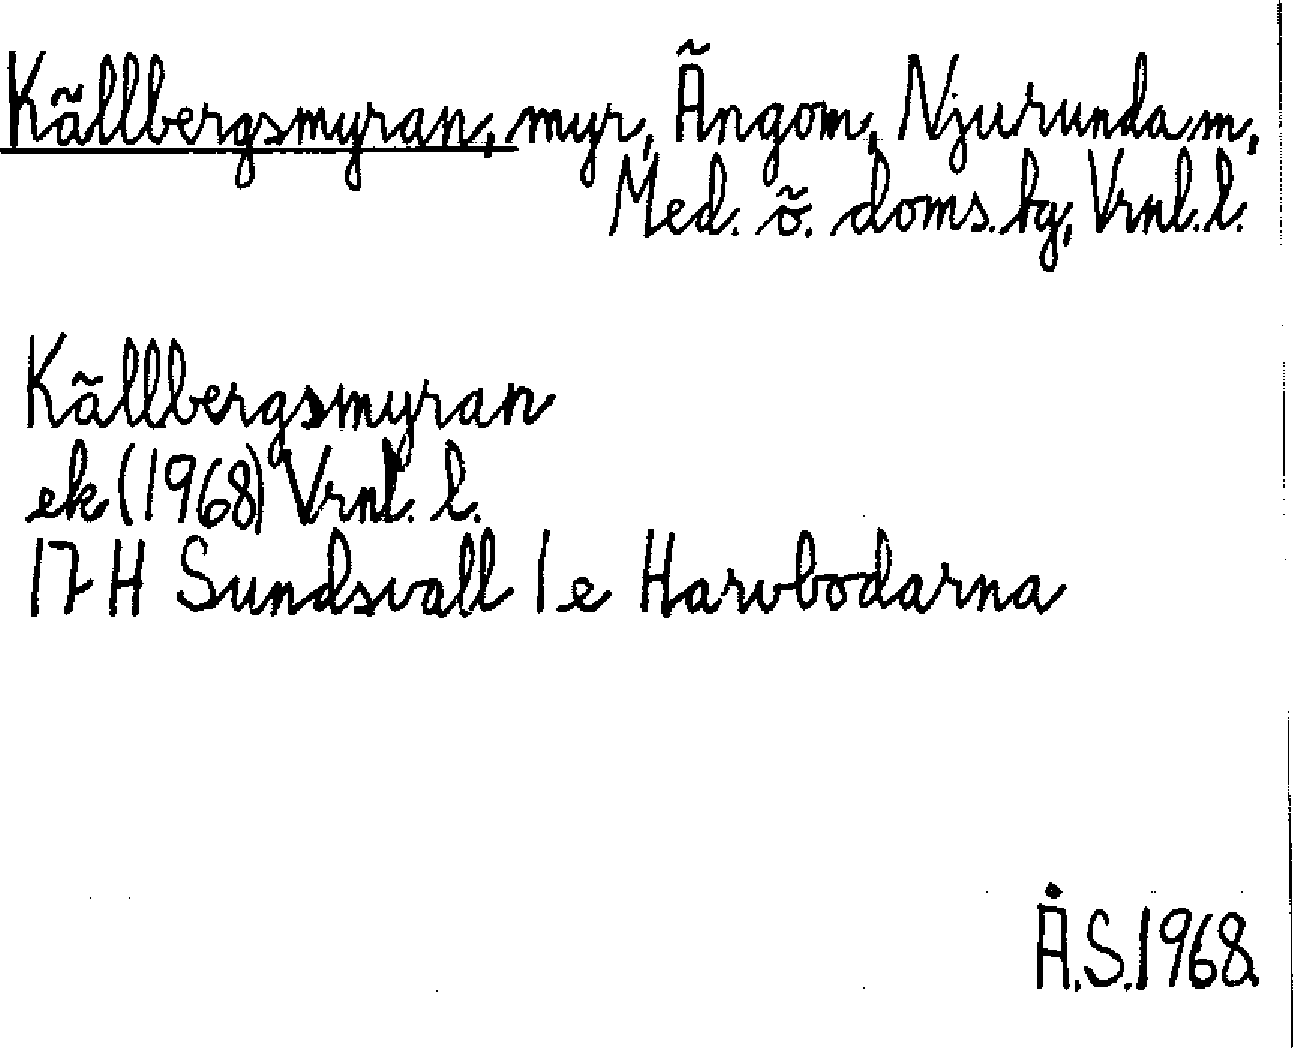 Källbergsmyran, myr, Ängom, Njurunda m,
Med. ö. doms. hg, Vrnl. l.
Källbergsmyran
ek (1968) Vrnl. l.
17 H Sundsvall 1 e Harvbodarna
Å.S. 1968